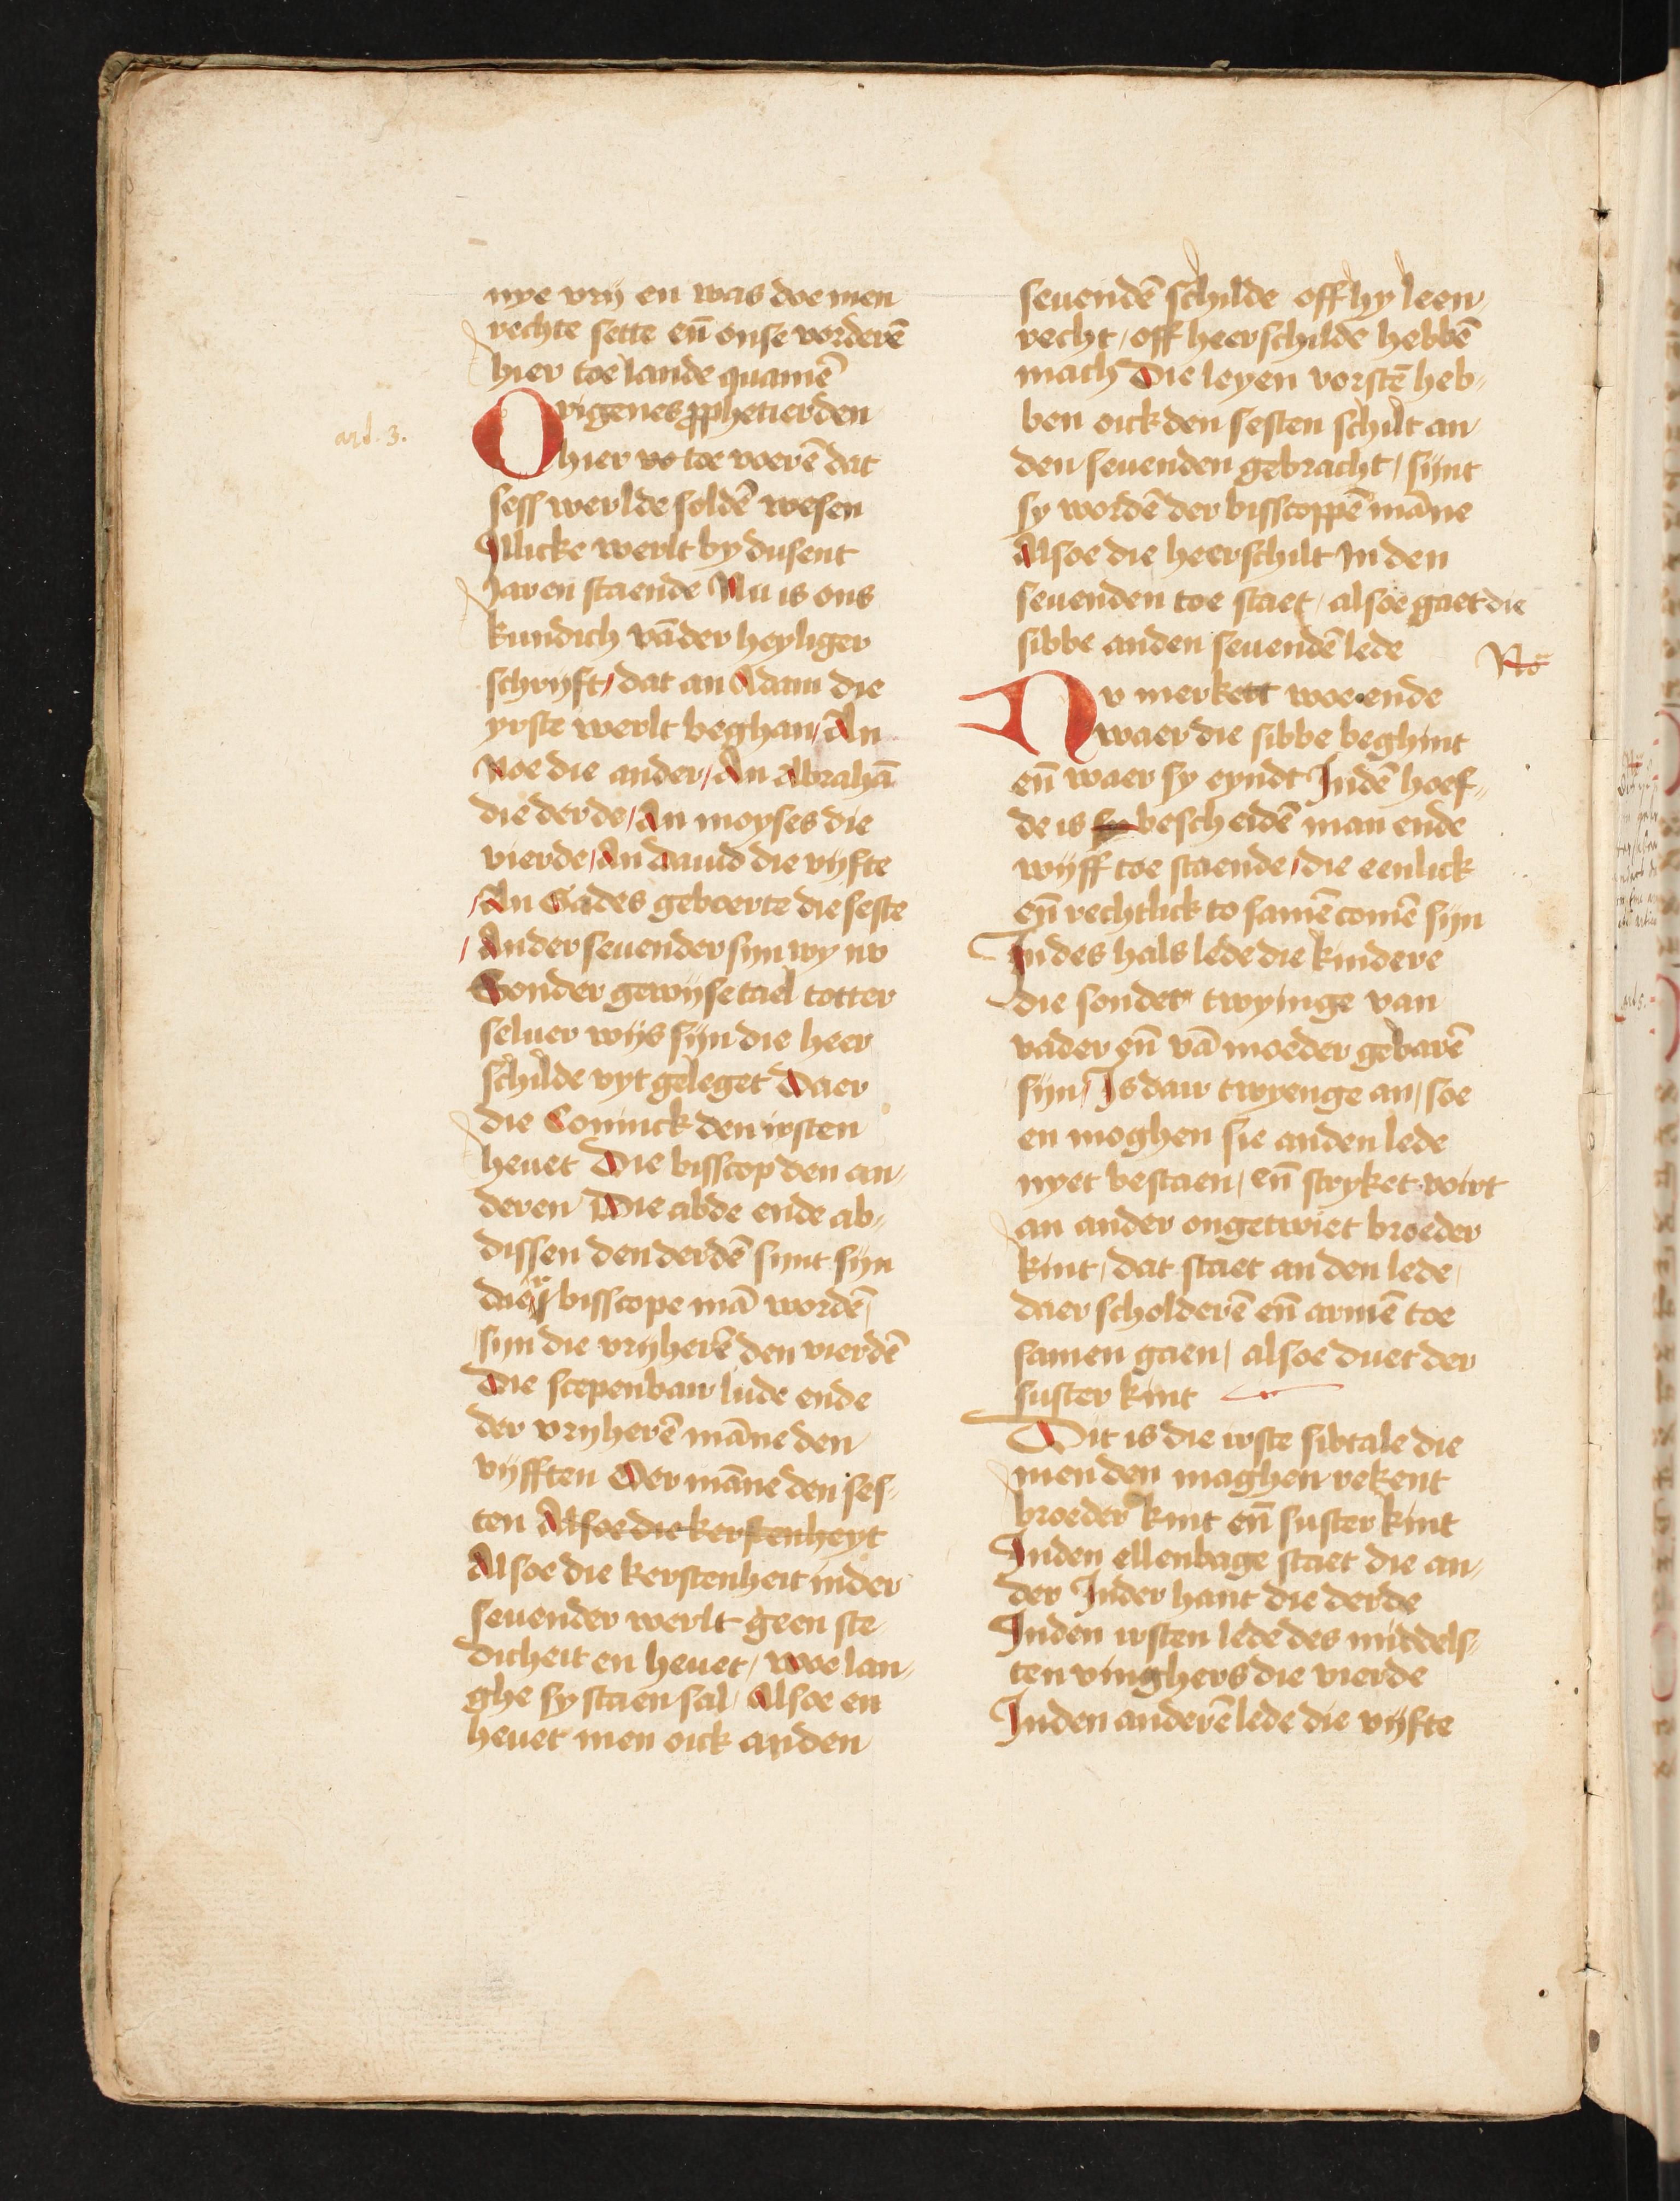 nye vrij en was doe men
rechte sette en̄ onse vorderē
hier toe lande quamē
art. 3.
Origenes ꝓphetierden
hier vo toe voerē dat
sess werlde soldē wesen
Illicke werlt by dusent
Jaren staende Nu is ons
kundich vāder heyliger
schrijft / dat an Adam die
yrste werlt beghan / An
Noe die ander / An Abrahā
die derde / An moyses die
vierde / An dauid die vijfte
/ An Gades geboerte die seste
/ Ander seuender sijn wy nv
Sonder gewijse tael totter
seluer wijs sijn die heer
schilde vyt geleget Daer
die Coninck den irsten
heuet Die bisscop den an
deren Die abde ende ab
dissen den derdē sijnt sijn
der bisscope mā wordē /
sijn die vrijherē den vierdē
Die scepenbair lude ende
der vrijherē māne den
vijfften Der māne den ses
ten Alsoe die kerstenheyt
Alsoe die kerstenheit inder
seuender werlt geen ste
dicheit en heuet / woe lan
ghe sy staen sal / Alsoe en
heuet men oick anden
seuendē schilde off hy leen
recht / off heerschilde hebbē
mach Die leyen vorstē heb
ben oick den sesten schilt an
den seuenden gebracht / sijnt
sy wordē der bisscoppē māne
Alsoe die heerschilt In den
seuenden toe staet / alsoe gaet die
sibbe anden seuendē lede
No
Nv merkett woe ende
waer die sibbe beghint
en̄ waer sy eyndt Indē hoef
de is sy bescheidē man ende
wijff toe staende / die eenlick
en̄ rechtlick to samē comē sijn
Indes hals lede die kindere
die sonder twyinge van
vader en̄ vā moeder gebarē
sijn / Is dair twyenge an / soe
en moghen sie anden lede
nyet bestaen / en̄ stryket voirt
an ander ongetwiet broeder
kint / dat staet an den lede
daer scholderē en̄ armē toe
samen gaen / alsoe duet der
suster kint
Dit is die irste sibtale die
men den maghen rekent
broeder kint en̄ suster kint
Inden ellenbage staet die an
der Inder hant die derde
Inden irsten lede des middels
ten vinghers die vierde
Inden anderē lede die vijfte